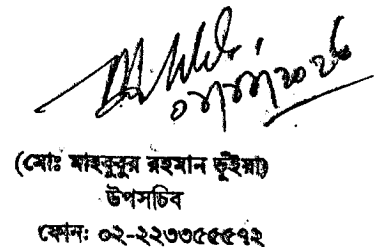 (মোঃ মাহবুবুর রহমান ভূঁইয়া)
উপসচিব
ফোন: ০২-২২৩৩৫৫৫৭২